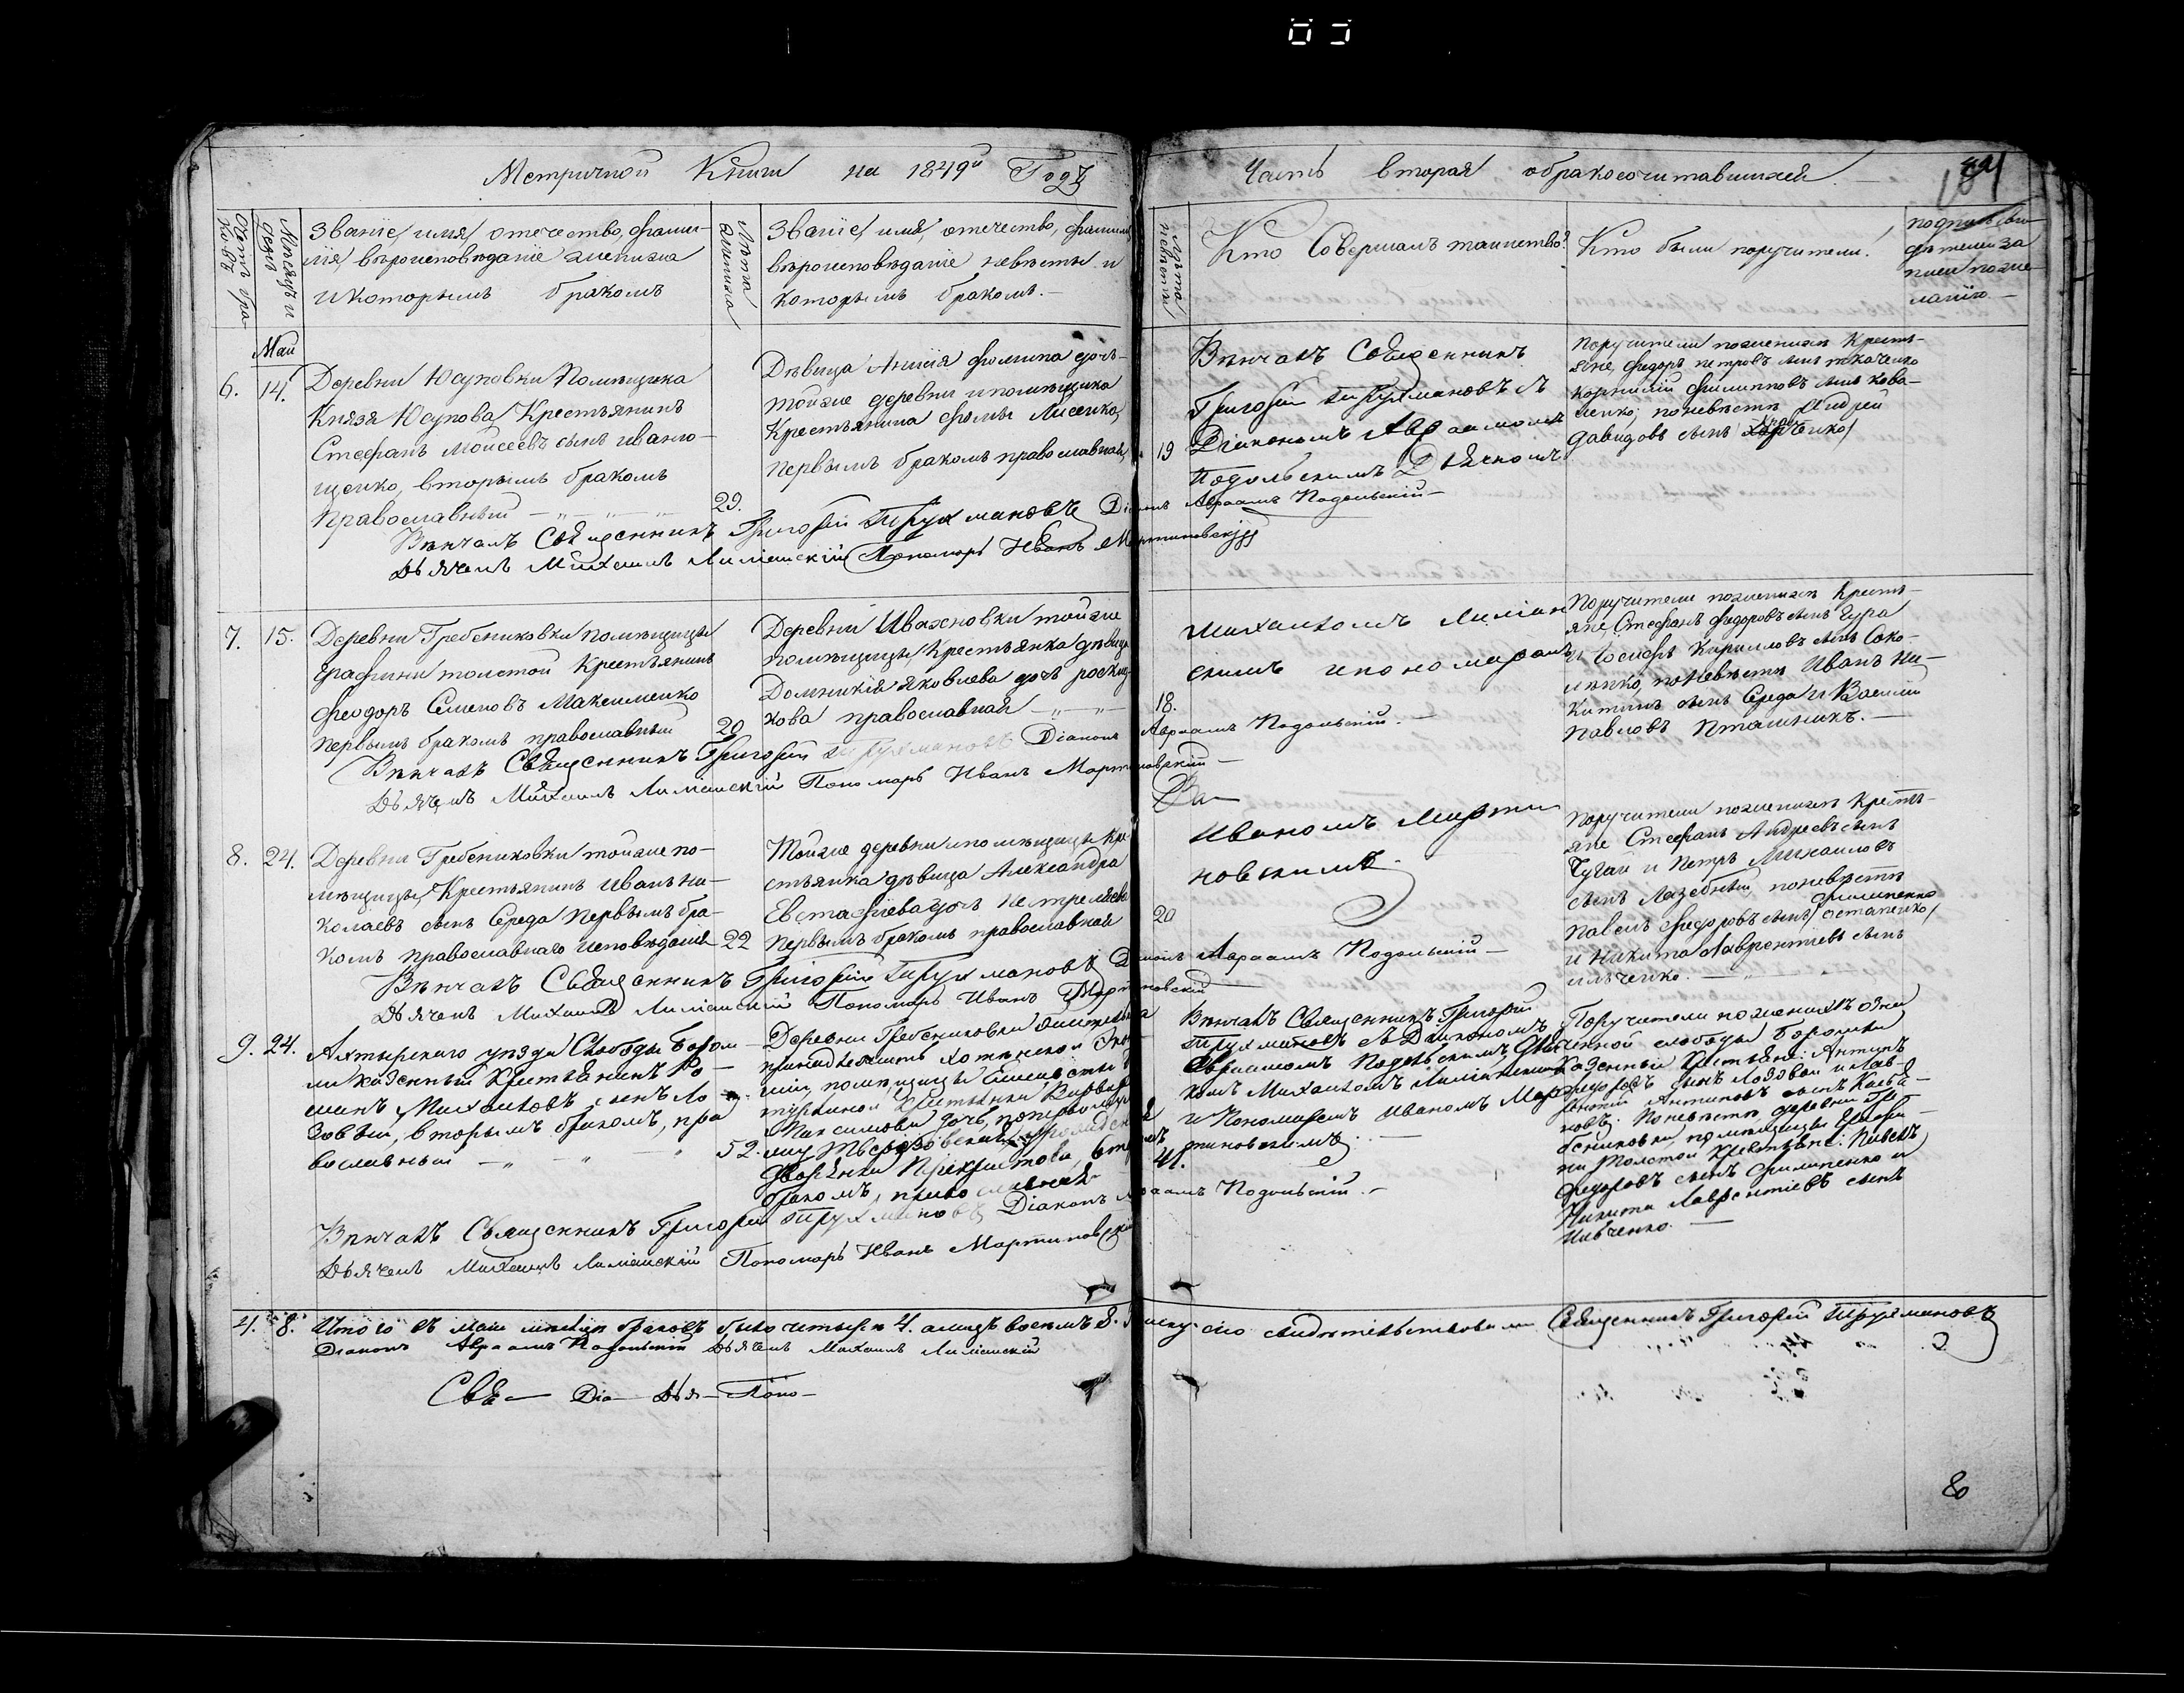 Метричной Книги на 1849й Годъ
Часть вторая обракосочитавшихся.
Счетъ бра-
ковъ
Мѣсяцъ и
день
Званіе, имя, отечество, фами-
лія, вѣроисповѣданіе жениха
и которымъ бракомъ
Лѣта
жениха
Званіе, имя, отечество, фамилія
вѣроисповѣданіе невѣсты и
которымъ бракомъ.-
Лѣта
невѣсты
Кто Совершалъ таинство?
Кто были поручители.
подпись сви-
дѣтелей за
писи по же-
ланію-
Май
6.
14.
Деревни Юсуповки Помѣщика
Князя Юсупова Крестьянинъ
Стефанъ Моисеевъ сынъ Иваню-
щенко, вторымъ бракомъ
Православный
29.
Дѣвица Анисія Фомина дочь
тойже деревни и помѣщика
Крестьянина Фомы Лисенко,
первымъ бракомъ православная
19
Вѣнчалъ Священникъ
Григорій Трухмановъ съ
Діакономъ Авраамомъ
Подольскимъ Дьячкомъ
Поручители поженихѣ Кресть-
яне, Федоръ Петровъ сынъ Ткаченко
Корнилій Филиповъ сынъ Кова-
ленко; поневѣстѣ Андрей
Давидовъ сынъ
Вѣнчалъ Священникъ Григорій Трухмановъ Діаконъ Авраамъ Подольскій-
Дьячекъ Михаилъ Лиманскій Пономарь Иванъ Мартиновскій
7.
15.
Деревни Гребениковки помѣщицы
Графини Толстой Крестьянинъ
Феодоръ Семеновъ Максименко
первымъ бракомъ православный
20
Деревни Ивахновки тойже
помѣщицы, Крестьянка дѣвица
Домникія Яковлева дочь
православная
18.
Михаиломъ Лиман
скимъ и пономаремъ
Поручители поженихѣ Кресть-
яне, Стефанъ Федоровъ сынъ Гура
и Іосифъ Кириловъ сынъ
поневѣстѣ Иванъ Ни-
китинъ сынъ Середа и Василій
Павловъ Пташникъ.-
Вѣнчалъ Священникъ Григорій Трухмановъ Діаконъ Авраамъ Подольскій.-
Дьячекъ Михаилъ Лиманскій Пономарь Иванъ Мартиновскій-
8.
24.
Деревни Гребениковки тойже по-
мѣщицы, Крестьянинъ Иванъ Ни-
колаевъ сынъ Середа Первымъ бра-
комъ православнаго исповѣданія
22
Тойже деревни ипомѣщицы кре
стьянка дѣвица Александра
Евстафіева дочь
первымъ бракомъ православная
20
Иваномъ Марти
новскимъ.
Поручители поженихѣ Кресть-
яне Стефанъ Андреевъ сынъ
Чугай и Петръ Михаиловъ
сынъ Лазебный, поневѣстѣ
Филипенко
Павелъ Федоровъ сынъ (Остапенко)
и Никита Лаврентіевъ сынъ
Ивченко.
Вѣнчалъ Священникъ Григорій Трухмановъ Діаконъ Авраамъ Подольскій-
Дьячекъ Михаилъ Лиманскій Пономарь Иванъ Мартиновскій
9.
24.
Ахтырскаго уѣзда Слободы Бором-
ли казенный Крестьянинъ Ро-
манъ Михаиловъ сынъ Ло-
зовый, вторымъ бракомъ, пра
вославный
52.
Деревни Гребениковки
принадлежащей Хотѣнской Эко
міи, помѣщицы
Крестьянки
Максимова дочь,
бракомъ, православная
41.
Вѣнчалъ Священникъ Григорій
Трухмановъ съ Діакономъ
Авраамомъ Подольскимъ, Дьяч
комъ Михаиломъ Лиманскимъ
и Пономаремъ Иваномъ Мар
тиновскимъ.
Поручители поженихѣ озна
ченной слободы Боромли
Казенный Крестьяне: Антипъ
Федоровъ сынъ Лозовый и Лав-
рентій Антиповъ сынъ
Поневѣстѣ, деревни Гре-
бениковки, помѣщицы Графи-
ни Толстой Крестьяне: Павелъ
Федоровъ сынъ Филипенко и
Никита Лаврентіевъ сынъ
Ивченко.
Вѣнчалъ Священникъ Григорій Трухмановъ Діаконъ Авраамъ Подольскій.-
Дьячекъ Михаилъ Лиманскій Пономарь Иванъ Мартиновскій
4.
8.
Итого въ маѣ мѣсяцѣ браковъ было четыре 4. алицъ восемь 8. свидѣтельствовали Священникъ Григорій Трухмановъ
Діаконъ Авраамъ Подольскій Дьячекъ Михаилъ Лиманскій
Свя- Діа- Дья- Поно-
80